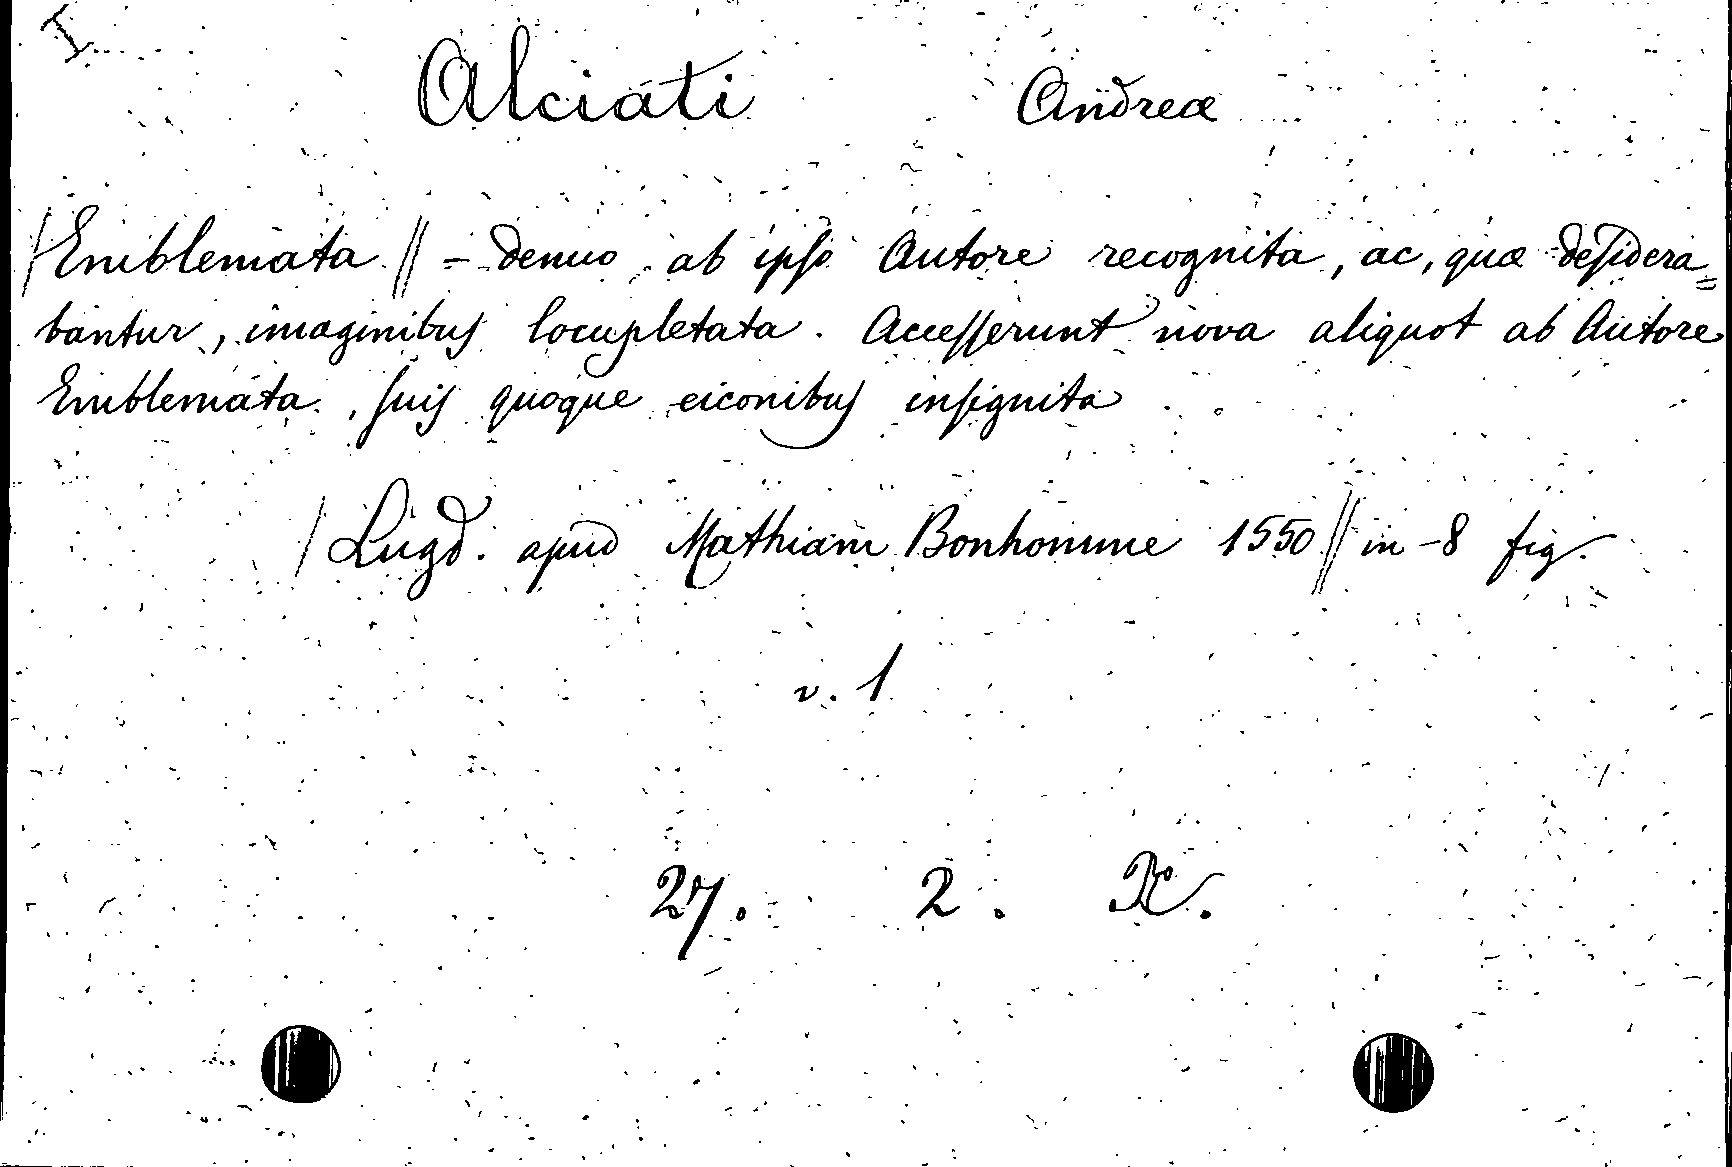 I
Alciati Andreæ
/ Emblemata // - denuo ab ipso Autore recognita, ac, quæ desidera=
bantur, imaginibus locupletata. Accesserunt nova aliquot ab Autore
Emblemata, suis quoque eiconibus insignita
/ Lugd. apud Mathiam Bonhomme 1550 // in-8 fig.
v. 1
27. 2.